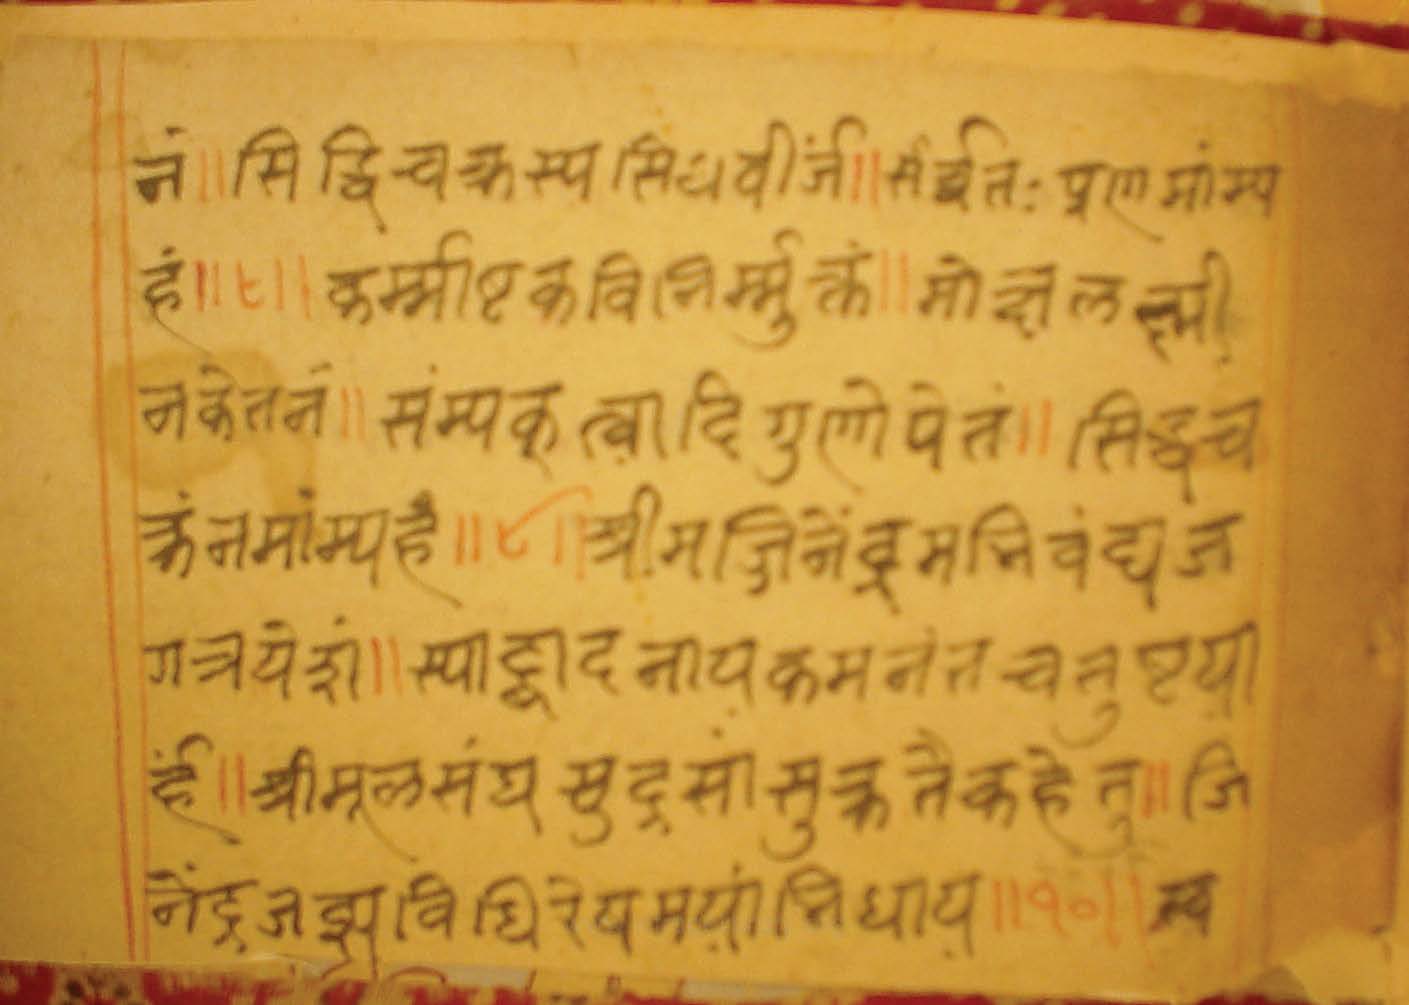 नं॥ सिद्धिचक्रस्य सिधवीर्जं॥ सर्व्वतः प्रणमांम्य
हं॥८॥ कर्म्माष्टकविनिर्म्मुक्तं॥ मोक्षलक्ष्मी
नकेतनं॥ संम्यक्त्वादिगुणोपेतं॥ सिद्धच
क्रंनमांम्यहं॥९॥ श्रीमज्जिनेंद्रमभिवंद्यज
गत्रयेशं॥ स्याद्वादनायकमनंतचतुष्टया
र्हं॥ श्रीमूलसंघसुद्रसांसुक्रतैकहेतु॥ जि
नेंद्रजज्ञविधिरेषमयांभिधाय॥१०॥ स्व